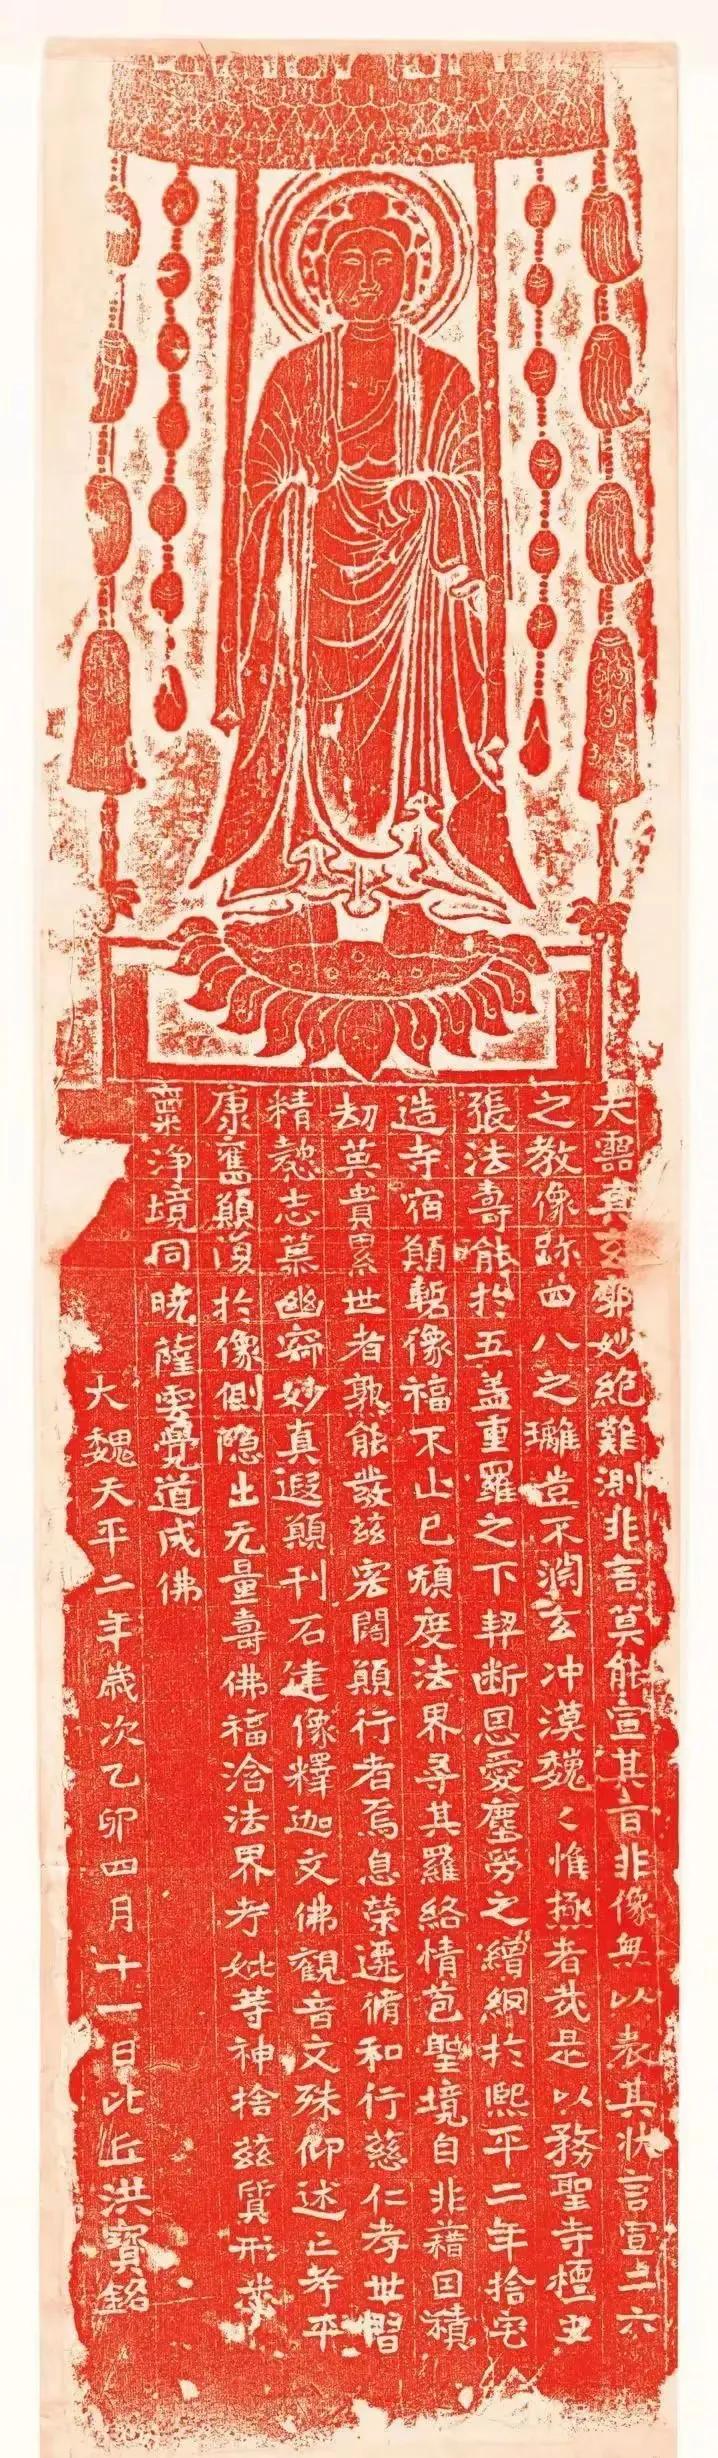 夫靈真玄廓妙絕難測非言莫能宣其旨非像無以表其狀言宣二六
之教像跡四八之璀豈不淵玄冲漠魏々惟極者哉是以務聖寺檀主
張法壽能於五蓋重羅之下契断恩愛塵勞之繒網於熙平二年捨宅
造寺宿願暫像福不止已頻度法界尋其羅絡情苞聖境自非藉因積
劫莫貴累世者孰能發兹宏闊願行者焉息榮遷脩和行慈仁孝世習
精懃志慕幽寂妙真遐願刊石建像釋迦文佛觀音文殊仰述亡考平
康舊願復於像側隐出无量壽佛福洽法界考妣等神捨兹質形悉
稟净境同曉薩雲覺道成佛
大魏天平二年歲次乙卯四月十一日比丘洪寳銘